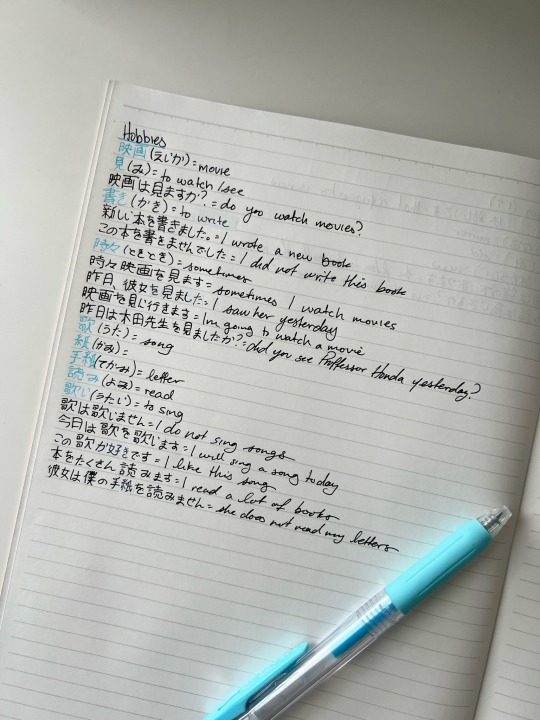 Hobbies
映画(えいが) = movie
見(み) = to watch/see
映画は見ますか? = do you watch movies?
書き(かき) = to write
新しい本を書きました。= I wrote a new book
この本を書きませんでした = I did not write this book
時々(ときどき) = sometimes
時々映画を見ます = sometimes I watch movies
昨日、彼女を見ました = I saw her yesterday
映画を見い行きます = Im going to watch a movie
昨日は本田先生を見ましたか? = did you see Proffessor Honda yesterday?
歌(うた) = song
紙(かみ) =
手紙(てがみ) = letter
読み(よみ) = read
歌い(うたい) = to sing
歌は歌いません = I do not sing songs
今日は歌を歌います = I will sing a song today
この歌が好きです = I like this song
本をたくさん読みます = I read a lot of books
彼女は僕の手紙を読みません = she does not read my letters